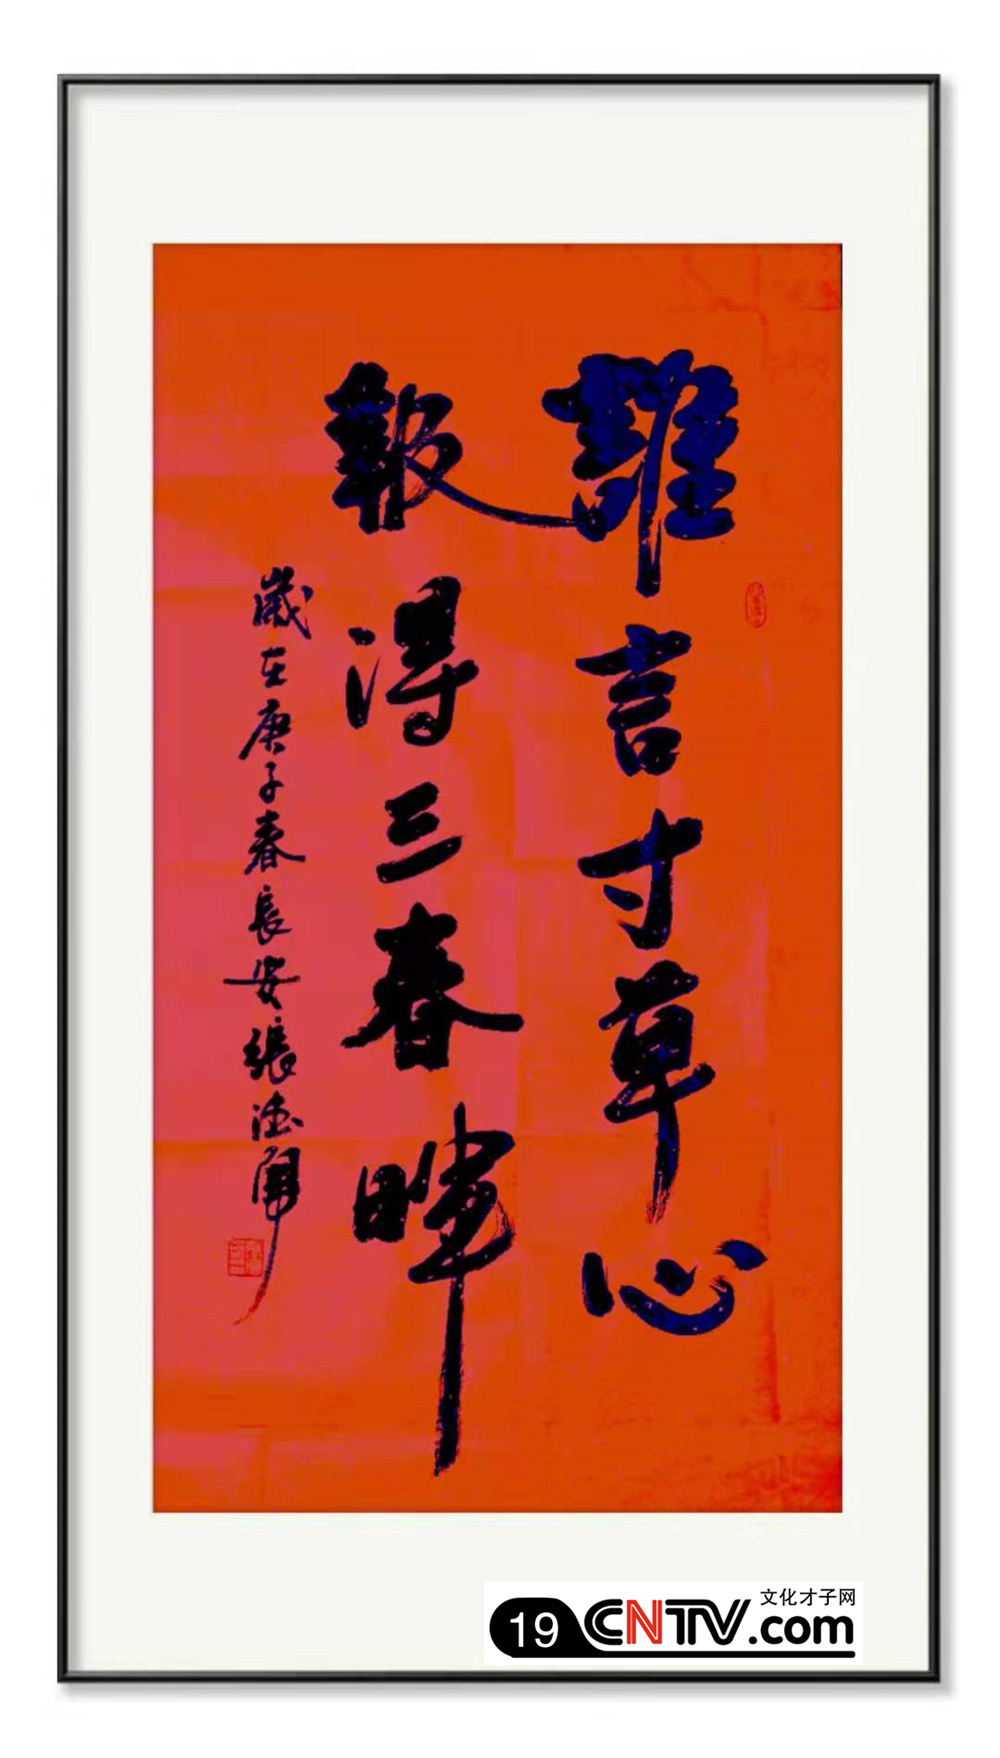 誰言寸草心
報得三春暉
歲在庚子春長安張德
文化才子网
19 CNTV.com